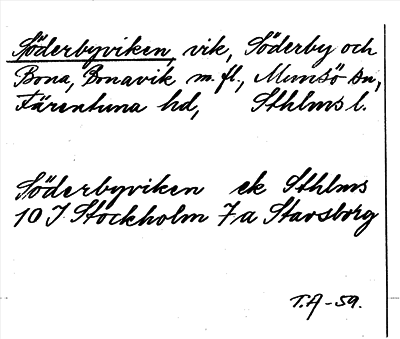 Söderbyviken, vik, Söderby och
Bona, Bonavik m. fl., Munsö sn,
Färentuna hd, Sthlms l.
Söderbyviken ek Sthlms
10 I Stockholm 7a Stavsborg
T.A-59.